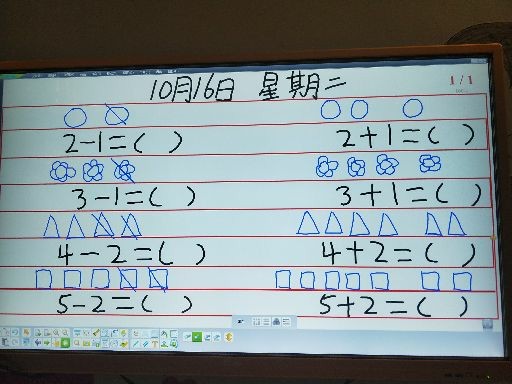 10月16日 星期二
1/1
2-1=( ) 2+1=( )
3-1=( ) 3+1=( )
4-2=( ) 4+2=( )
5-2=( ) 5+2=( )